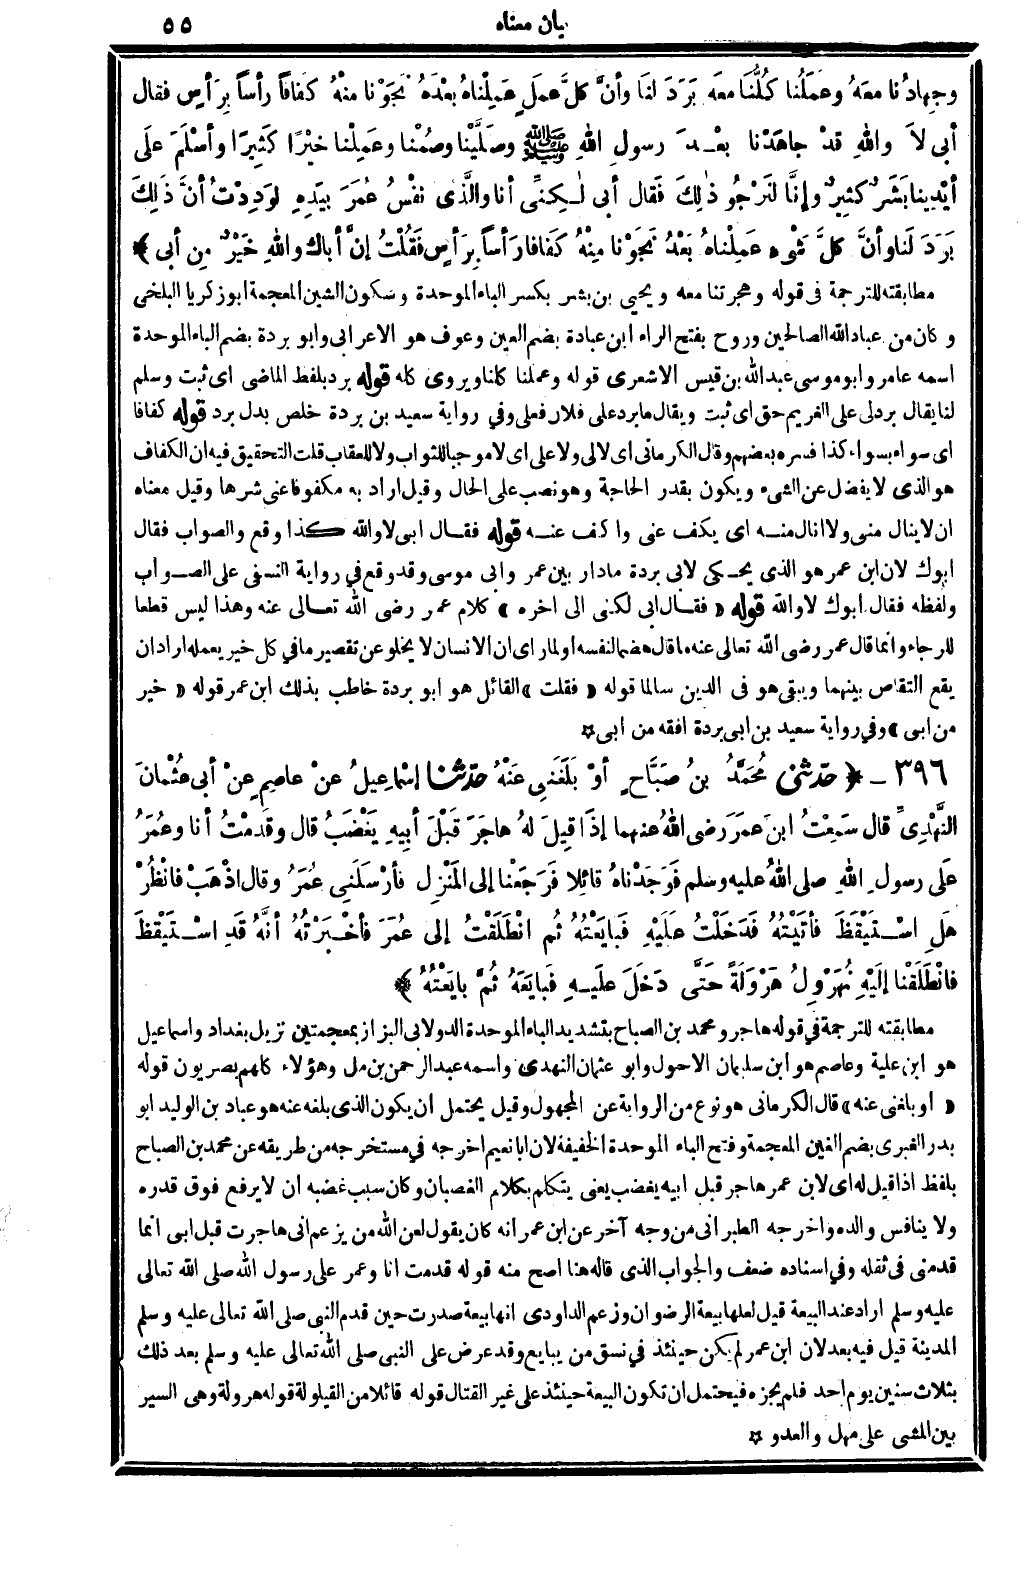 بيان معناه ٥٥
وجِهادُنا معَهُ وعَمَلُنا كُلُّنا معَه بَرَدَ لنَا وأنَّ كلَّ عملٍ عَمِلْناهُ بعْدَهُ نَجَوْنا منْهُ كَفافاً رأساً بِرَأسٍ فقال
أبي لاَ واللهِ قدْ جاهَدْنا بعْـدَ رسولِ اللهِ ﷺ وصَلَّيْنا وصُمْنا وعَمِلْنا خيْرًا كَثِيرًا وأسْلَمَ علَى
أيْدِينا بَشَرٌ كثِيرٌ وإنَّا لنَرْجُو ذٰلِكَ فَقال أبي لٰـكِنِّي أنا والَّذِي نفْسُ عُمَرَ بيَدِهِ لوَدِدْتُ أنَّ ذٰلِكَ
بَرَدَ لَنا وأنَّ كلَّ شَيْءٍ عَمِلْناهُ بَعْدُ نَجَوْنا مِنْهُ كَفافا رَأساً بِرَأسٍ فَقُلْتُ إنَّ أباكَ واللهِ خَيْرٌ مِن أبي ﴾
مطابقته للترجمة في قوله وهجرتنا معه ويحيي بن بشر بكسر الباء الموحدة وسكون الشين المعجمة ابو زكريا البلخي
وكان من عباد الله الصالحين وروح بفتح الراء ابن عبادة بضم العين وعوف هو الاعرابي وابو بردة بضم الباء الموحدة
اسمه عامر وابو موسى عبد الله بن قيس الاشعرى قوله وعملنا كلنا ويروى كله قوله برد بلفظ الماضي اى ثبت وسلم
لنا يقال برد لى على الغريم حق اى ثبت ويقال ما برد على فلان فعلى وفي رواية سعيد بن بردة خلص بدل برد قوله كفافا
اى سواء بسواء كذا فسره بعضهم وقال الكرماني اى لالى ولا على اى لا موجبا للثواب ولا للعقاب قلت التحقيق فيه ان الكفاف
هو الذى لا يفضل عن الشىء ويكون بقدر الحاجة وهو نصب على الحال وقيل اراد به مكفوفا عنى شرها وقيل معناه
ان لا ينال منى ولا انال منـه اى يكف عنى واكف عنـه قوله فقـال ابى لا والله كـذا وقع والصواب فقال
ابوك لان ابن عمر هو الذى يحـكى لابى بردة مادار بين عمر وابى موسى وقد وقع في رواية النسفى على الصـواب
ولفظه فقال ابوك لا والله قوله « فقـال ابى لكنى الى اخره » كلام عمر رضى الله تعـالى عنه وهذا ليس قطعا
للرجاء وانما قال عمر رضى الله تعالى عنه ما قال هضما لنفسه او لما راى ان الانسان لا يخلو عن تقصير ما في كل خير يعمله اراد ان
يقع التقاص بينهما ويبقى هو فى الدين سالما قوله « فقلت » القائل هو ابو بردة خاطب بذلك ابن عمر قوله « خير
من ابى » وفي رواية سعيد بن ابى بردة افقه من ابى ✩
٣٩٦ – ﴿ حدّثنى مُحَمَّدُ بنُ صَبَّاحٍ أوْ بَلَغَنِي عَنْهُ حدّثنا إسْماعِيلُ عنْ عاصِمٍ عنْ أبي عُثْمانَ
النَّهْدِيِّ قال سَمِعْتُ ابنَ عمَرَ رضى اللهُ عنهما إذَا قِيلَ لهُ هاجَرَ قَبْلَ أبِيهِ يَغْضَبُ قال وقَدِمْتُ أنا وعُمَرُ
علَى رسولِ اللهِ صلى اللهُ عليه وسلم فوَجَدْناهُ قائِلا فَرَجَعْنا إلى المَنْزِلِ فأرْسَلَنِي عُمَرُ وقال اذْهَبْ فانْظُرْ
هَلِ اسْـتَيْقَظَ فأتَيْتُهُ فَدَخَلْتُ علَيْهِ فَبايَعْتُهُ ثُم انْطَلَقْتُ إلى عُمَرَ فأخْبَرْتُهُ أنَّهُ قَدِ اسْـتَيْقَظَ
فانْطَلَقْنا إلَيْهِ نُهَرْوِلُ هَرْوَلَةً حَتَّى دَخَلَ علَيـهِ فَبايَعَهُ ثُمَّ بايَعْتُهُ ﴾
مطابقته للترجمة في قوله هاجر ومحمد بن الصباح بتشديد الباء الموحدة الدولابى البزاز بمعجمتين نزيل بغداد واسماعيل
هو ابن علية وعاصم هو ابن سليمان الاحول وابو عثمان النهدى واسمه عبد الرحمن بن مل وهؤلاء كلهم بصريون قوله
« او بلغنى عنه » قال الكرمانى هو نوع من الرواية عن المجهول وقيل يحتمل ان يكون الذى بلغه عنه هو عباد بن الوليد ابو
بدر الغبرى بضم الغين المعجمة وفتح الباء الموحدة الخفيفة لان ابا نعيم اخرجه في مستخرجه من طريقه عن محمد بن الصباح
بلفظ اذا قيل له اى لابن عمر هاجر قبل ابيه يغضب يعنى يتكلم بكلام الغضبان وكان سبب غضبه ان لا يرفع فوق قدره
ولا ينافس والده واخرجه الطبرانى من وجه آخر عن ابن عمر انه كان يقول لعن الله من يزعم انى هاجرت قبل ابى انما
قدمنى فى ثقله وفي اسناده ضعف والجواب الذى قاله هنا اصح منه قوله قدمت انا وعمر على رسول الله صلى الله تعالى
عليه وسلم اراد عند البيعة قيل لعلها بيعة الرضوان وزعم الداودى انها بيعة صدرت حين قدم النبى صلى الله تعالى عليه وسلم
المدينة قيل فيه بعد لان ابن عمر لم يكن حينئذ في نسق من يبايع وقد عرض على النبى صلى الله تعالى عليه وسلم بعد ذلك
بثلاث سنين يوم احد فلم يجزه فيحتمل ان تكون البيعة حينئذ على غير القتال قوله قائلا من القيلولة قوله هرولة وهى السير
بين المشى على مهل والعدو ✩